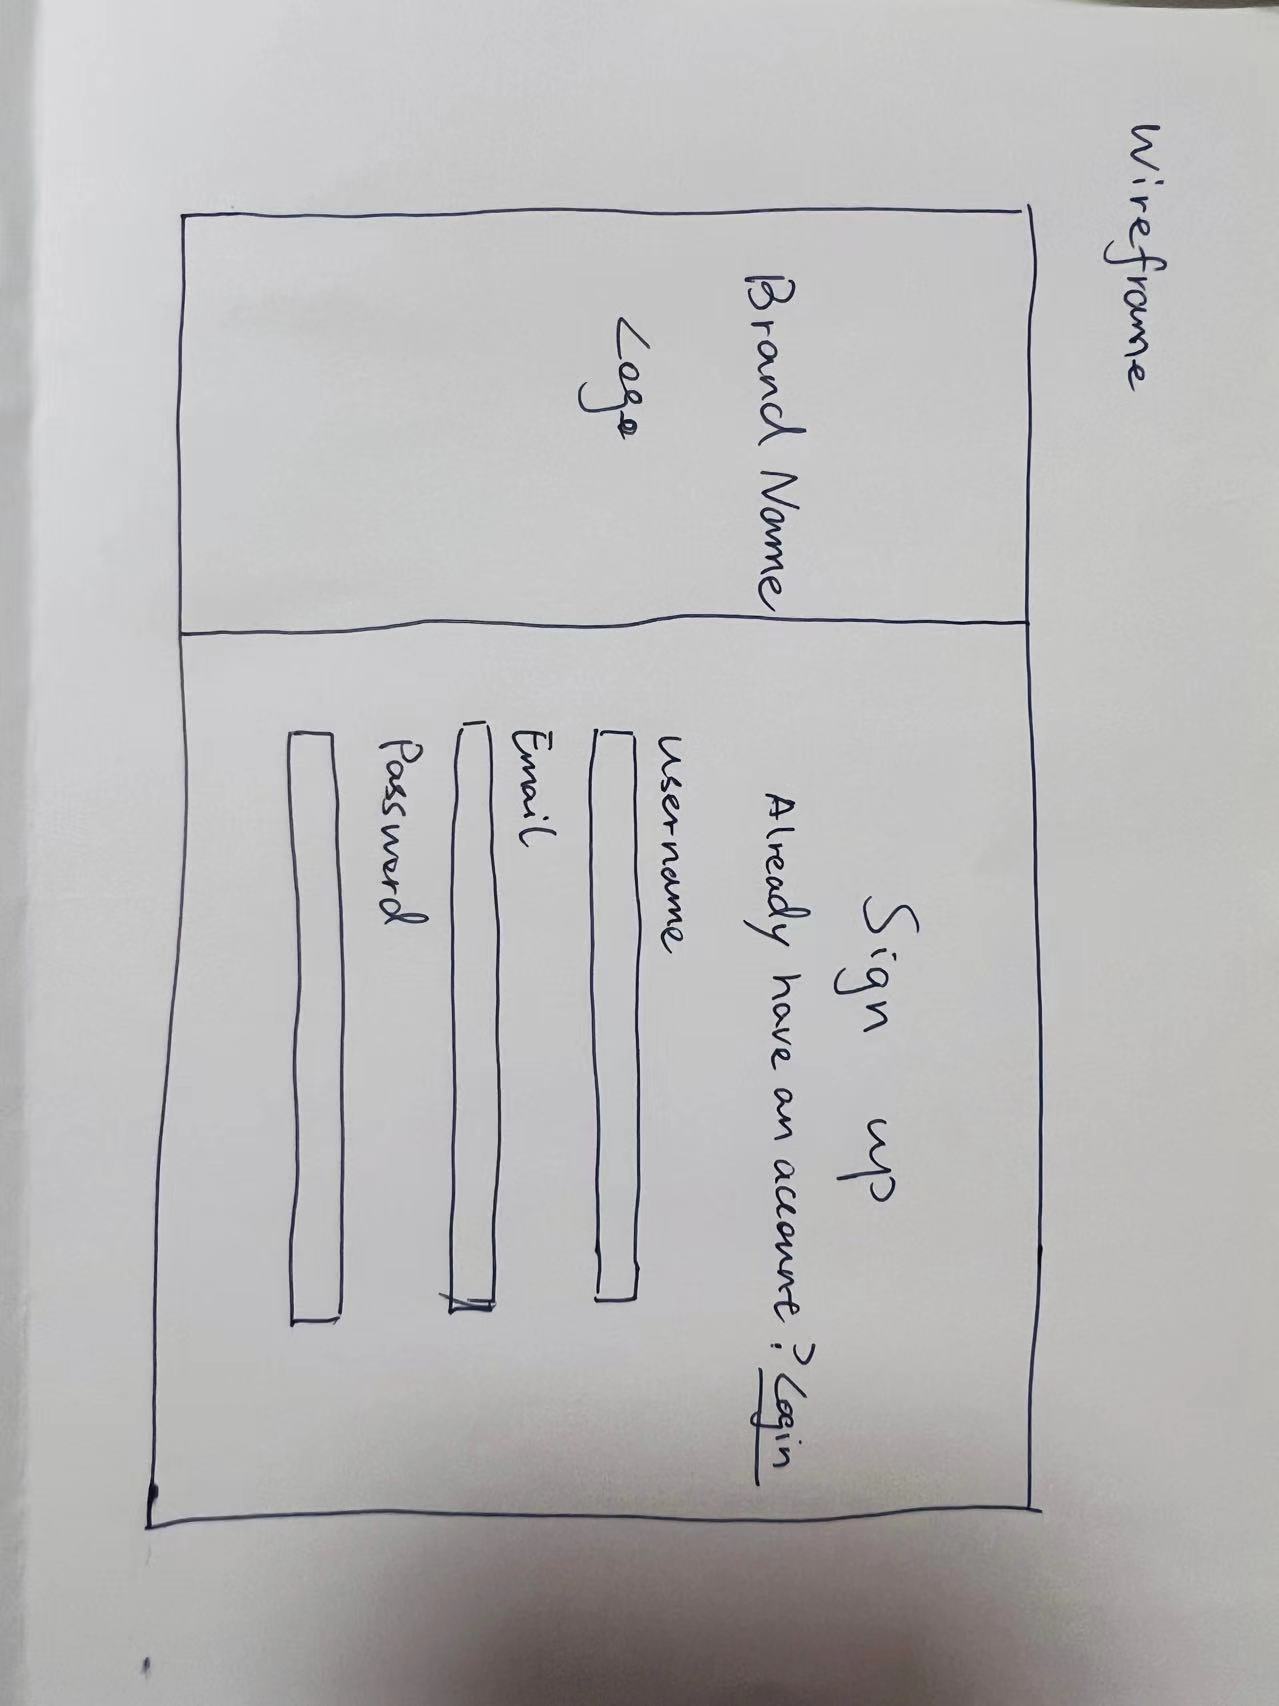 Wireframe
Brand Name
Logo
Sign up
Already have an account? Login
username
Email
Password